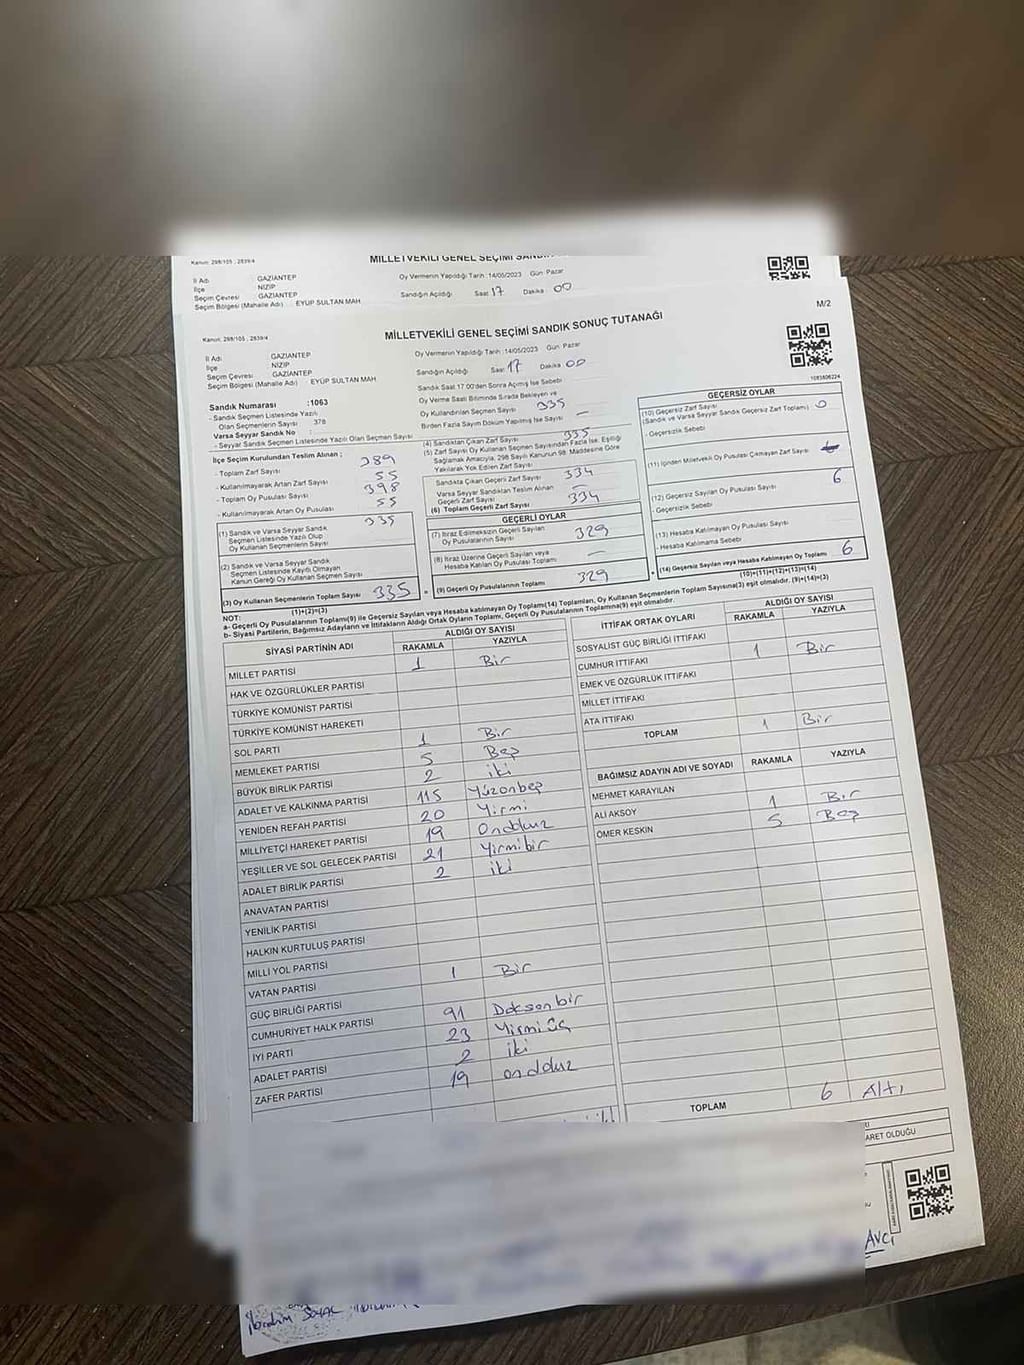 Kanun: 298/105 ; 2839/4
MİLLETVEKİLİ GENEL SEÇİMİ SANDIK
İl Adı : GAZİANTEP
İlçe : NİZİP
Seçim Çevresi : GAZİANTEP
Seçim Bölgesi (Mahalle Adı) : EYÜP SULTAN MAH
Oy Vermenin Yapıldığı Tarih :14/05/2023 Gün: Pazar
Sandığın Açıldığı Saat 17 Dakika 00
M/2
Kanun: 298/105 ; 2839/4
MİLLETVEKİLİ GENEL SEÇİMİ SANDIK SONUÇ TUTANAĞI
İl Adı : GAZİANTEP
İlçe : NİZİP
Seçim Çevresi : GAZİANTEP
Seçim Bölgesi (Mahalle Adı) : EYÜP SULTAN MAH
Oy Vermenin Yapıldığı Tarih :14/05/2023 Gün: Pazar
Sandığın Açıldığı Saat 17 Dakika 00
Sandık Saat 17:00'den Sonra Açılmış İse Sebebi
Oy Verme Saati Bitiminde Sırada Bekleyen ve
Oy Kullandırılan Seçmen Sayısı 335
Birden Fazla Sayım Döküm Yapılmış İse Sayısı —
Sandık Numarası :1063
- Sandık Seçmen Listesinde Yazılı
Olan Seçmenlerin Sayısı : 378
Varsa Seyyar Sandık No :
- Seyyar Sandık Seçmen Listesinde Yazılı Olan Seçmen Sayısı
İlçe Seçim Kurulundan Teslim Alınan ;
- Toplam Zarf Sayısı 389
- Kullanılmayarak Artan Zarf Sayısı 55
- Toplam Oy Pusulası 398
- Kullanılmayarak Artan Oy Pusulası 55
(1) Sandık ve Varsa Seyyar Sandık
Seçmen Listesinde Yazılı Olup
Oy Kullanan Seçmenlerin Sayısı 335
(2) Sandık ve Varsa Seyyar Sandık
Seçmen Listesinde Kayıtlı Olmayan
Kanun Gereği Oy Kullanan Seçmen Sayısı
(3) Oy Kullanan Seçmenlerin Toplam Sayısı 335
(1)+(2)=(3)
(4) Sandıktan Çıkan Zarf Sayısı 335
(5) Zarf Sayısı Oy Kullanan Seçmen Sayısından Fazla İse, Eşitliği
Sağlamak Amacıyla, 298 Sayılı Kanunun 98. Maddesine Göre
Yakılarak Yok Edilen Zarf Sayısı
Sandıkta Çıkan Geçerli Zarf Sayısı 334
Varsa Seyyar Sandıktan Teslim Alınan
Geçerli Zarf Sayısı —
(6) Toplam Geçerli Zarf Sayısı 334
GEÇERLİ OYLAR
(7) İtiraz Edilmeksizin Geçerli Sayılan
Oy Pusulalarının Sayısı 329
(8) İtiraz Üzerine Geçerli Sayılan veya
Hesaba Katılan Oy Pusulası Toplamı —
(9) Geçerli Oy Pusulalarının Toplamı 329
1083806224
GEÇERSİZ OYLAR
(10) Geçersiz Zarf Sayısı
(Sandık ve Varsa Seyyar Sandık Geçersiz Zarf Toplamı) 0
- Geçersizlik Sebebi
(11) İçinden Milletvekili Oy Pusulası Çıkmayan Zarf Sayısı
(12) Geçersiz Sayılan Oy Pusulası Sayısı 6
- Geçersizlik Sebebi
(13) Hesaba Katılmayan Oy Pusulası Sayısı
- Hesaba Katılmama Sebebi
(14) Geçersiz Sayılan veya Hesaba Katılmayan Oy Toplamı 6
(10)+(11)+(12)+(13)=(14)
NOT:
a- Geçerli Oy Pusulalarının Toplamı(9) ile Geçersiz Sayılan veya Hesaba katılmayan Oy Toplamı(14) Toplamları, Oy Kullanan Seçmenlerin Toplam Sayısına(3) eşit olmalıdır. (9)+(14)=(3)
b- Siyasi Partilerin, Bağımsız Adayların ve İttifakların Aldığı Ortak Oyların Toplamı, Geçerli Oy Pusulalarının Toplamına(9) eşit olmalıdır.
SİYASİ PARTİNİN ADI ALDIĞI OY SAYISI
RAKAMLA YAZIYLA
MİLLET PARTİSİ 1 Bir
HAK VE ÖZGÜRLÜKLER PARTİSİ
TÜRKİYE KOMÜNİST PARTİSİ
TÜRKİYE KOMÜNİST HAREKETİ
SOL PARTİ 1 Bir
MEMLEKET PARTİSİ 5 Beş
BÜYÜK BİRLİK PARTİSİ 2 iki
ADALET VE KALKINMA PARTİSİ 115 Yüzonbeş
YENİDEN REFAH PARTİSİ 20 Yirmi
MİLLİYETÇİ HAREKET PARTİSİ 19 Ondokuz
YEŞİLLER VE SOL GELECEK PARTİSİ 21 Yirmibir
ADALET BİRLİK PARTİSİ 2 iki
ANAVATAN PARTİSİ
YENİLİK PARTİSİ
HALKIN KURTULUŞ PARTİSİ
MİLLİ YOL PARTİSİ
VATAN PARTİSİ 1 Bir
GÜÇ BİRLİĞİ PARTİSİ
CUMHURİYET HALK PARTİSİ 91 Doksanbir
İYİ PARTİ 23 Yirmiüç
ADALET PARTİSİ 2 iki
ZAFER PARTİSİ 19 ondokuz
İTTİFAK ORTAK OYLARI ALDIĞI OY SAYISI
RAKAMLA YAZIYLA
SOSYALİST GÜÇ BİRLİĞİ İTTİFAKI
CUMHUR İTTİFAKI 1 Bir
EMEK VE ÖZGÜRLÜK İTTİFAKI
MİLLET İTTİFAKI
ATA İTTİFAKI
TOPLAM 1 Bir
BAĞIMSIZ ADAYIN ADI VE SOYADI RAKAMLA YAZIYLA
MEHMET KARAYILAN
ALİ AKSOY 1 Bir
ÖMER KESKİN 5 Beş
TOPLAM 6 Altı
ARET OLDUĞU
AVCI
İbrahim